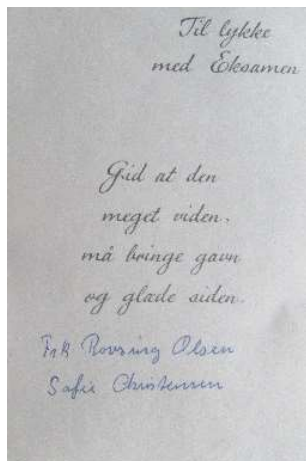 Til lykke
med Eksamen
Gid at den
meget viden.
må bringe gavn
og glæde siden.
Frk Rovsing Olsen
Sofie Christensen